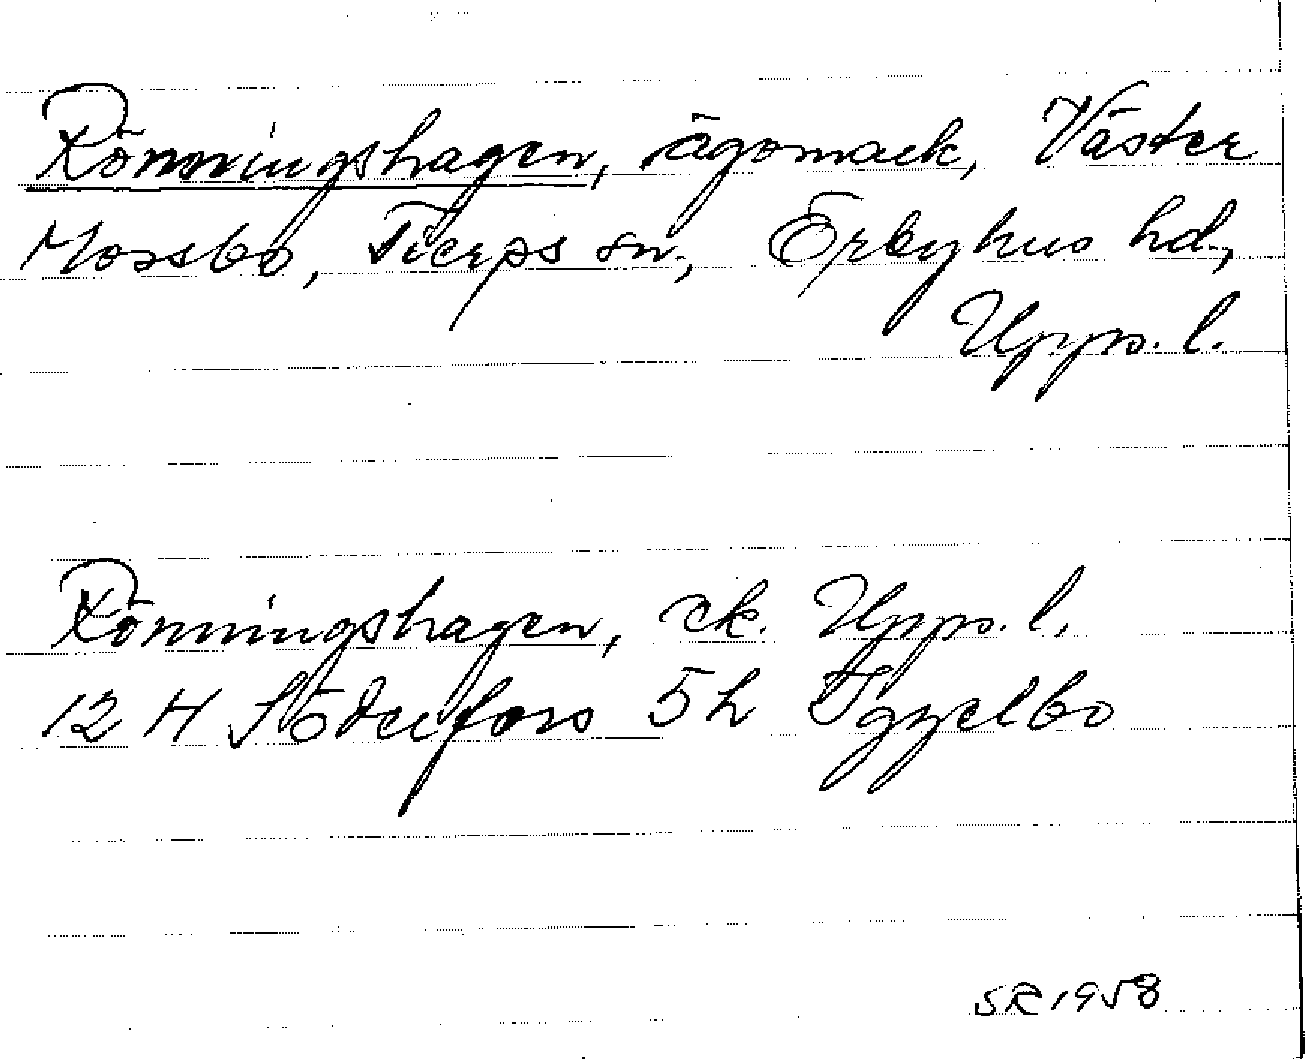 Rönningshagen, ägomark, Väster
Mossbo, Tierps sn, Örbyhus hd,
Upps. l.
Rönningshagen, ek. Upps. l.
12 H Söderfors 5 h Yggelbo
SR 1958